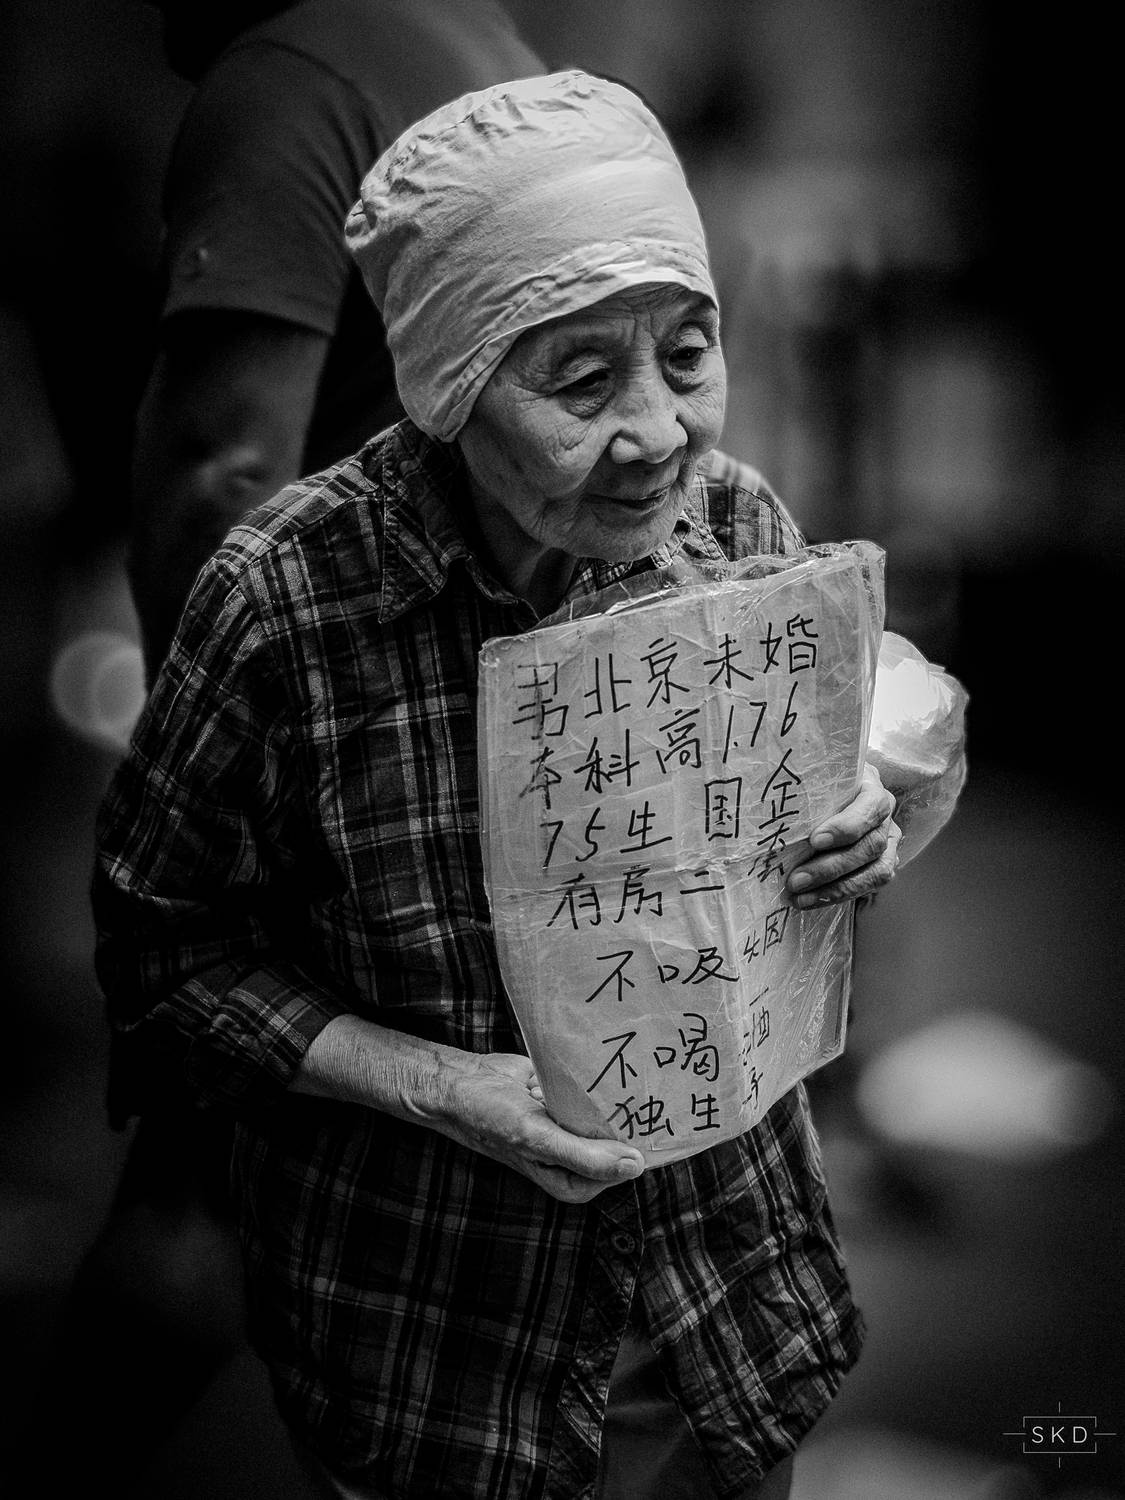 男北京未婚
本科高1.76
75生国企
有房二套
不吸烟
不喝酒
独生子
SKD